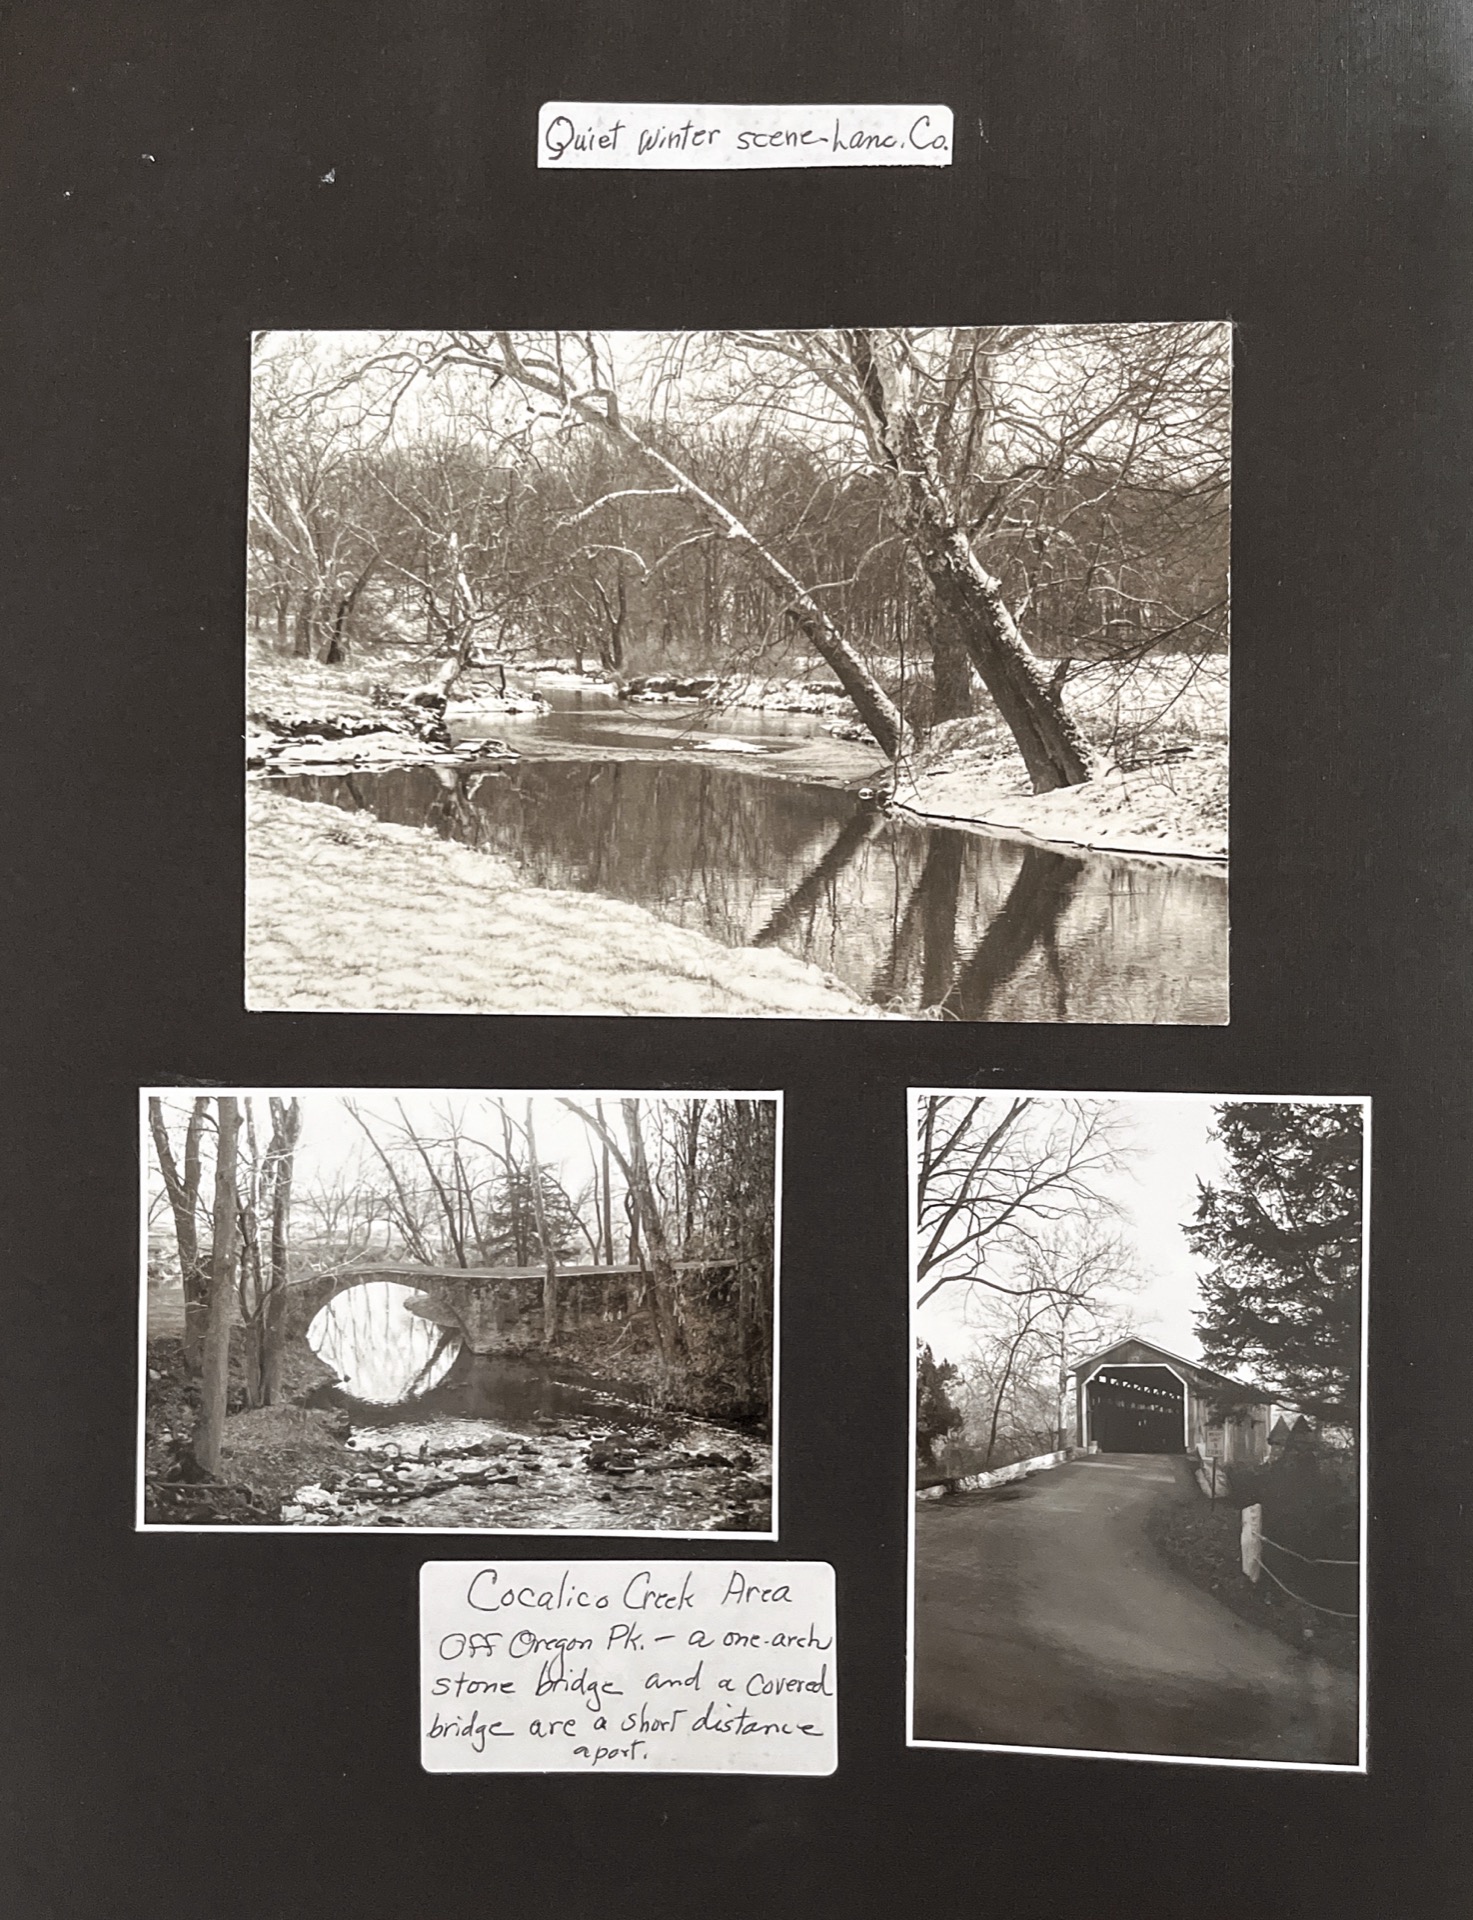 Quiet winter scene-Lanc. Co.
Cocalico Creek Area
Off Oregon Pk. - a one-arch
stone bridge and a covered
bridge are a short distance
apart.